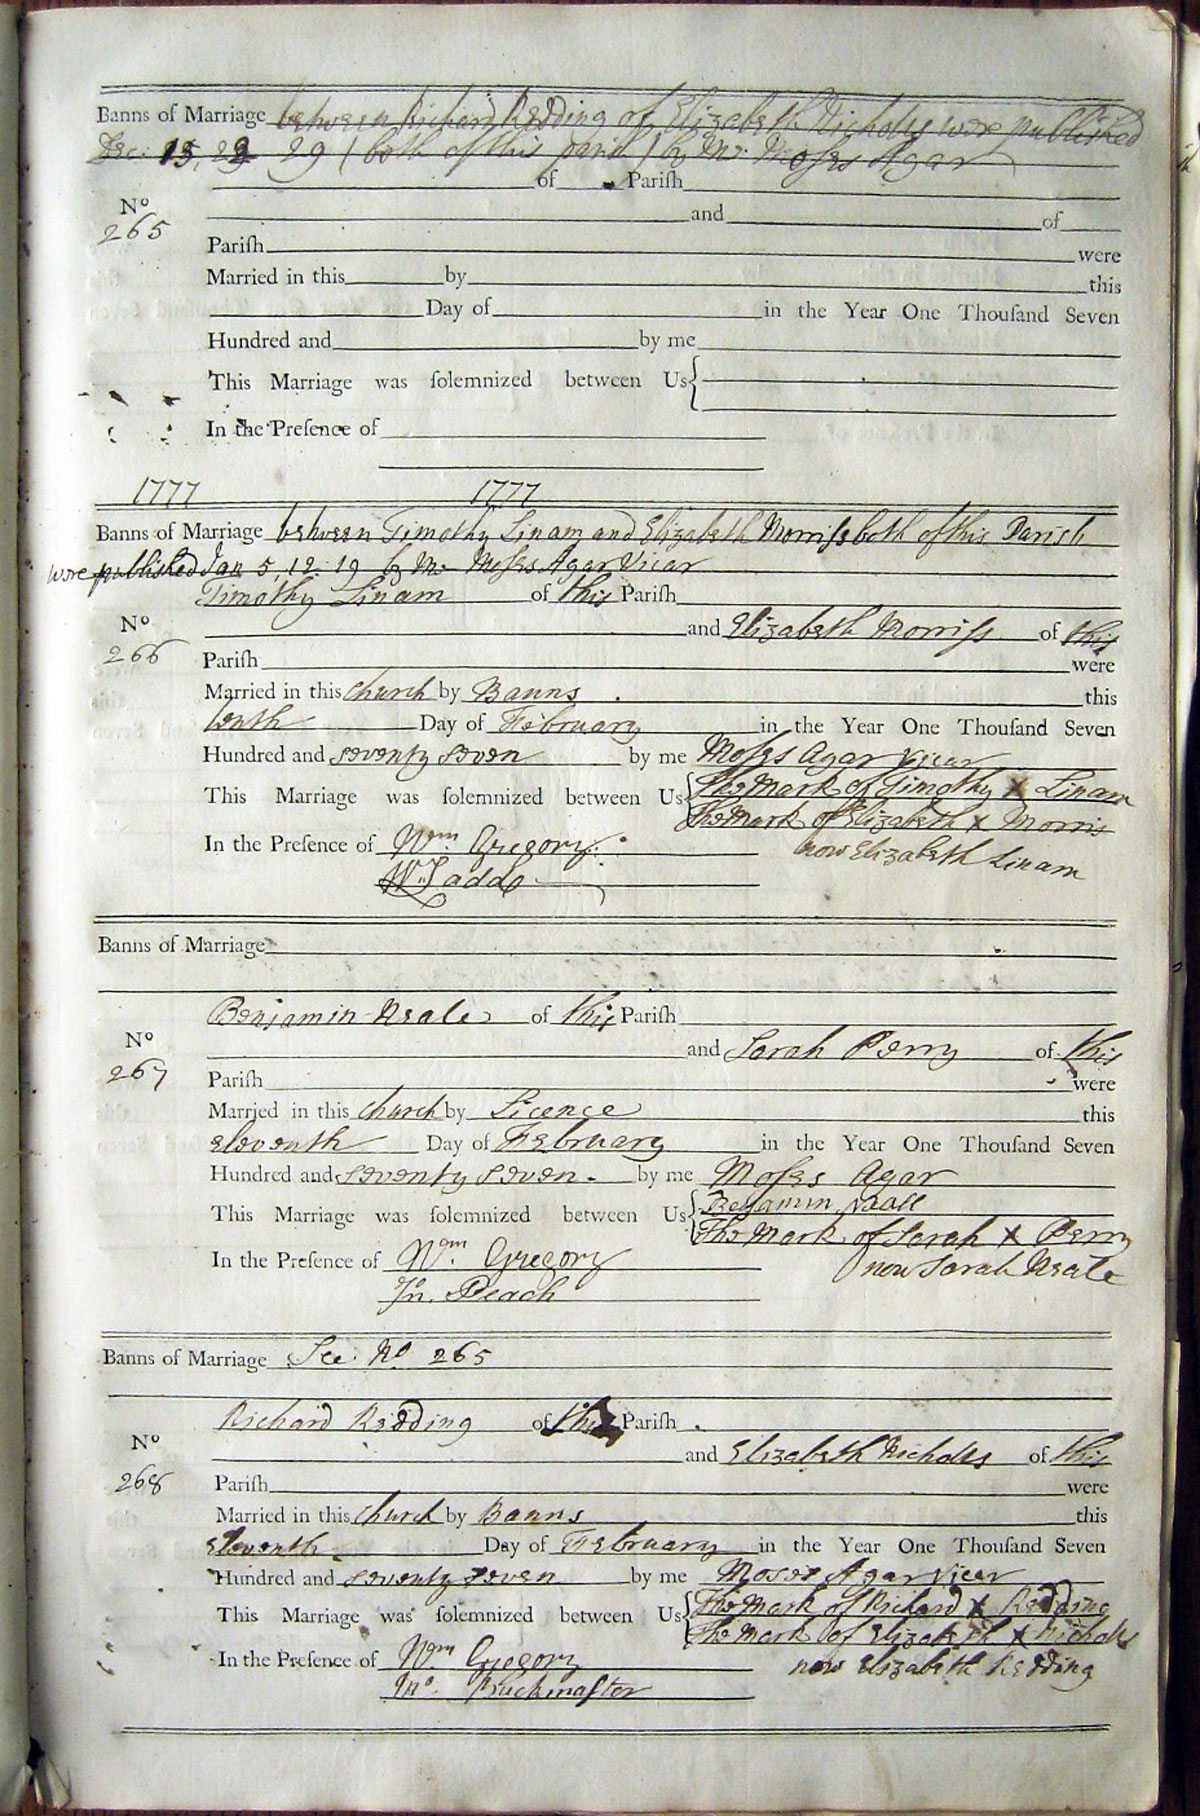 Banns of Marriage between Richard Redding & Elizabeth Nicholls were published
Dec: 15, 22 29 (both of this parish) by Mr Moſes Agar
of Pariſh
No
265
and of
Pariſh were
Married in this by this
Day of in the Year One Thouſand Seven
Hundred and by me
This Marriage was ſolemnized between Us
In the Preſence of
1777 1777
Banns of Marriage between Timothy Linam and Elizabeth Morriſs both of this Parish
were published Jan 5, 12, 19 by Mr Moſes Agar Vicar
Timothy Linam of this Pariſh
No
266
and Elizabeth Morriſs of this
Pariſh were
Married in this church by Banns this
tenth Day of February in the Year One Thouſand Seven
Hundred and seventy seven by me Moſes Agar Vicar
This Marriage was ſolemnized between Us The Mark of Timothy X Linam
The Mark of Elizabeth X Morris
In the Preſence of Wm Gregory now Elizabeth Linam
Banns of Marriage
Benjamin Neale of this Pariſh
No
267
and Sarah Perry of this
Pariſh were
Married in this church by Licence this
eleventh Day of February in the Year One Thouſand Seven
Hundred and seventy seven. by me Moſes Agar
This Marriage was ſolemnized between Us Benjamin Neall
The Mark of Sarah X Perry
In the Preſence of Wm Gregory now Sarah Neale
Jn. Peach
Banns of Marriage See No 265
Richard Redding of this Pariſh
No
268
and Elizabeth Nicholls of this
Pariſh were
Married in this church by Banns this
Eleventh Day of February in the Year One Thouſand Seven
Hundred and seventy seven by me Moses Agar Vicar
This Marriage was ſolemnized between Us The Mark of Richard X Redding
The Mark of Elizabeth X Nicholls
In the Preſence of Wm Gregory now Elizabeth Redding
Jno. Buckmaſter